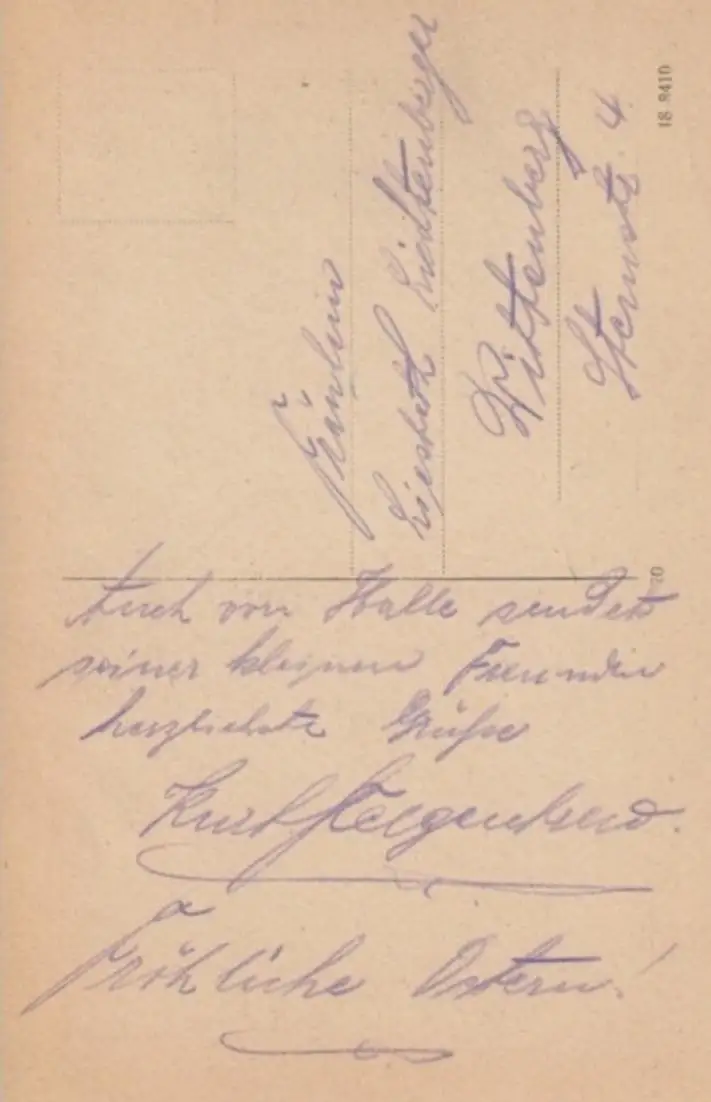 Fräulein
Liesbeth Lichtenberger
Wittenberg
Sternstr. 4
18 8410
Auch von Halle sendet
seiner kleinen Freundin
herzlichste Grüße
Kurt
Fröhliche Ostern!